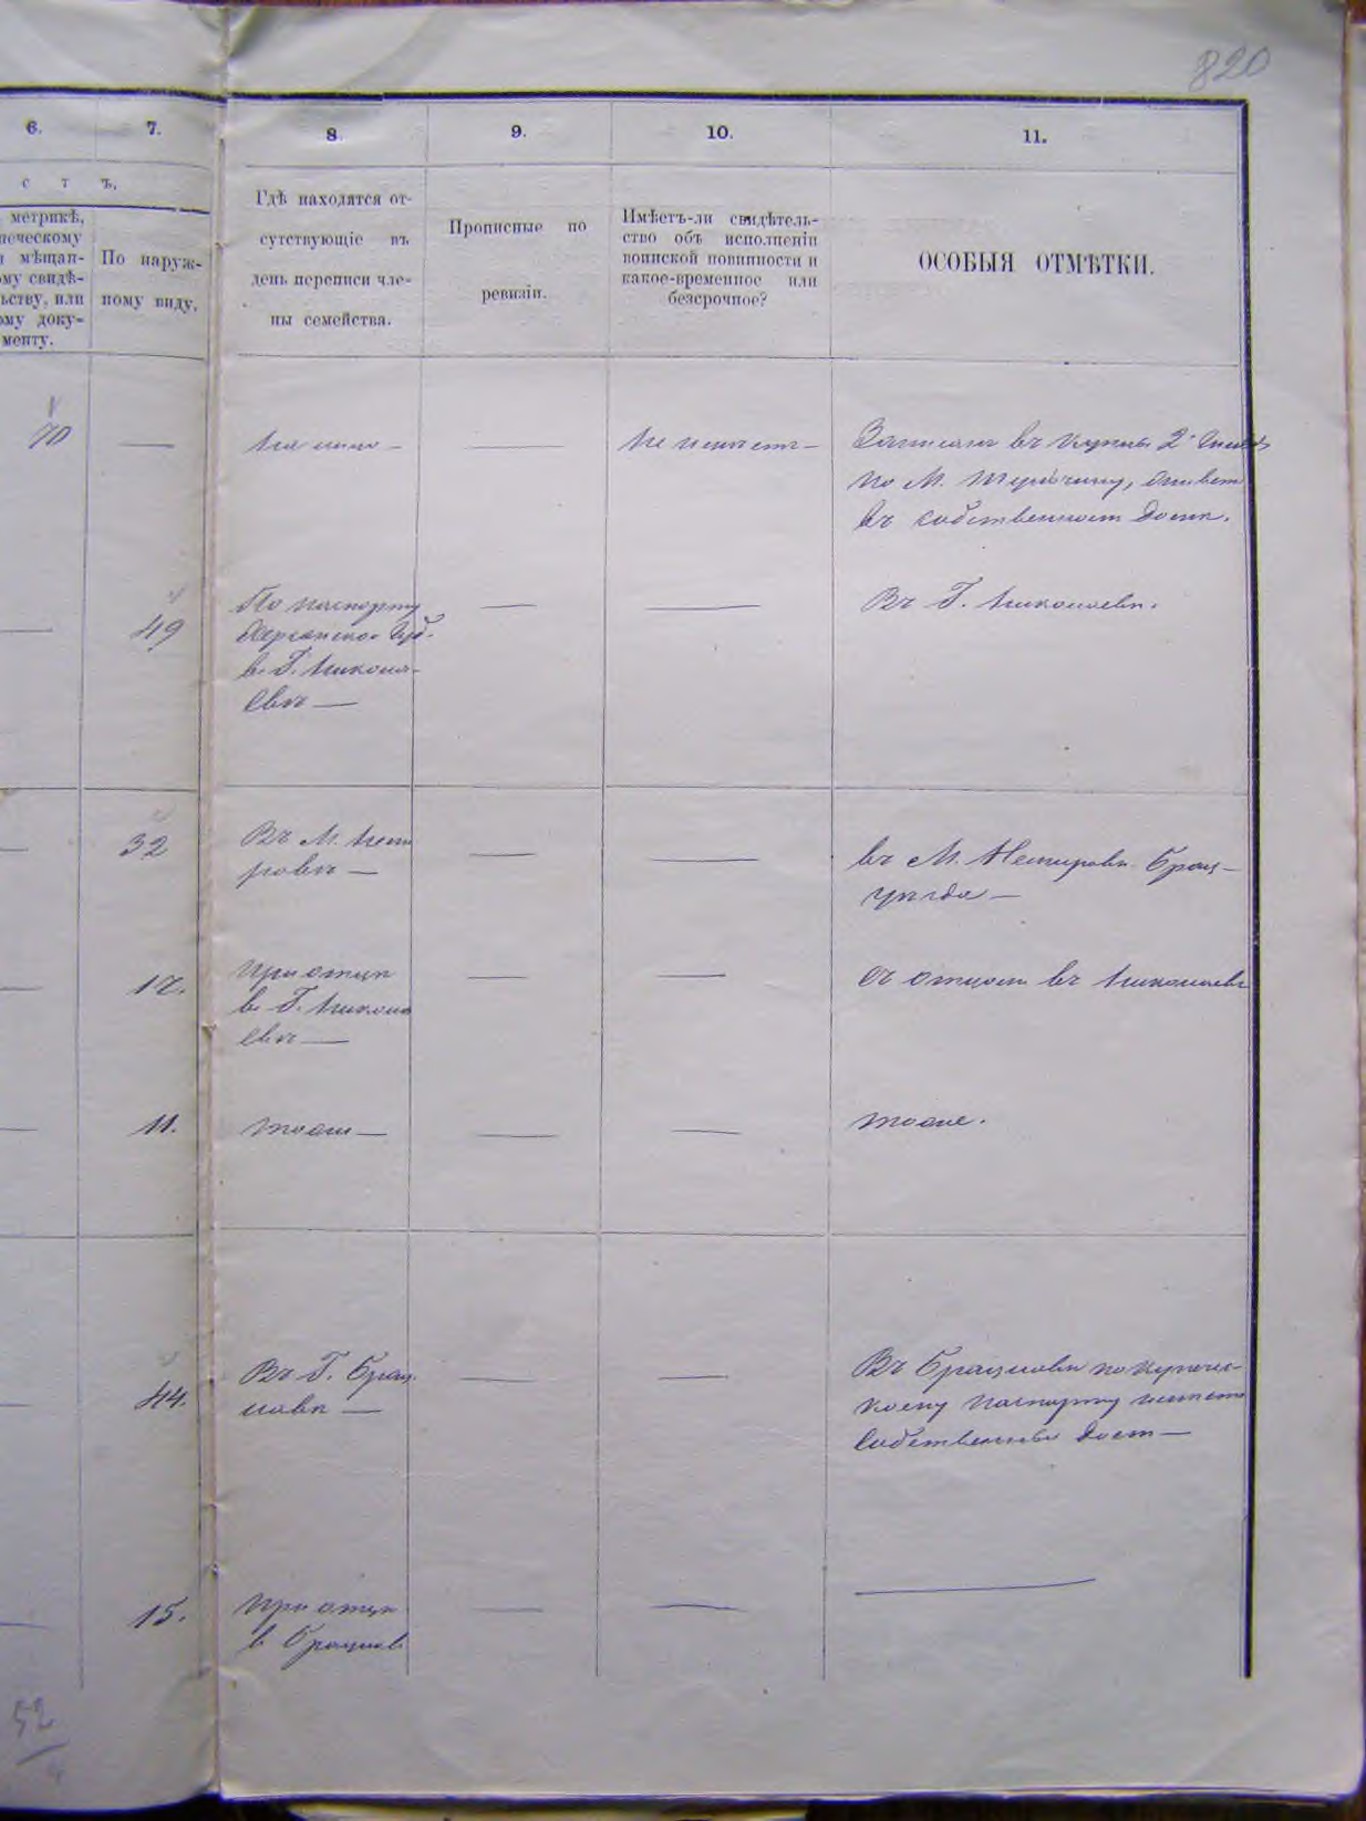 820
6.
7.
8
9.
10.
11.
с т ъ,
метрикѣ,
мѣщан-
свидѣ-
или
доку-
менту.
По наруж-
ному виду.
Гдѣ находятся от-
сутствующіе въ
день переписи чле-
ны семейства.
Прописные по
ревизіи.
Имѣетъ-ли свидѣтель-
ство объ исполненіи
воинской повинности и
какое-временное или
безсрочное?
ОСОБЫЯ ОТМѢТКИ.
70 —
На лицо —
—
Не имѣетъ —
Записанъ въ купцы 2 Гильд
по М. живетъ
въ собственномъ домѣ.
49
По паспорту
Херсонской Губ.
в. Г. Никола-
евѣ —
—
—
Въ Г. Николаевѣ.
32
Въ М. Неми
ровѣ —
—
—
въ М. Немировѣ Брац-
—
12.
При отцѣ
в. Г. Никола
евѣ —
—
—
Съ отцомъ въ Николаевѣ
11.
тоже —
—
—
тоже.
44.
Въ Г. Брац
лавѣ —
—
—
Въ Брацлавѣ по купечес-
кому паспорту имѣетъ
собственный домъ —
15.
При отцѣ
в Брацлавѣ
—
—
—
52